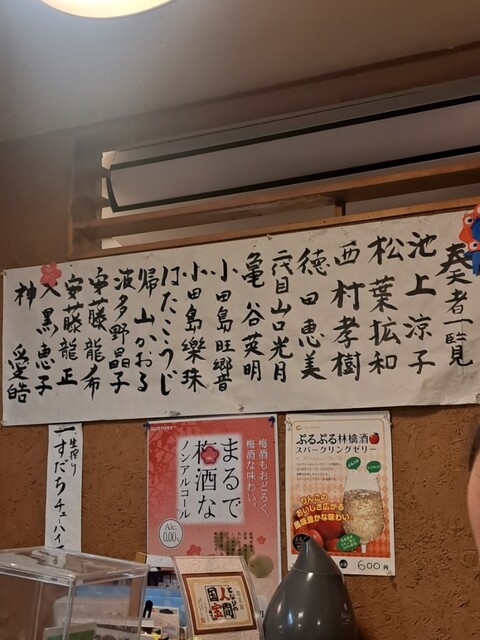 奏者一覧
池上涼子
松葉拡和
西村孝樹
徳田恵美
二代目山口光月
亀谷英明
小田島旺郷音
小田島樂珠
はたこうじ
帰山かおる
波多野晶子
安藤龍希
安藤龍正
大黒恵子
神 愛皓
生搾り
すだちチューハイ
SUNTORY
梅酒もおどろく、
梅酒な味わい。
まるで
梅酒な
ノンアルコール
Alc.
0.00%
ぷるぷる林檎酒
スパークリングゼリー
りんごの
おいしさ広がる
風味豊かな味わい。
600円
人間
国宝